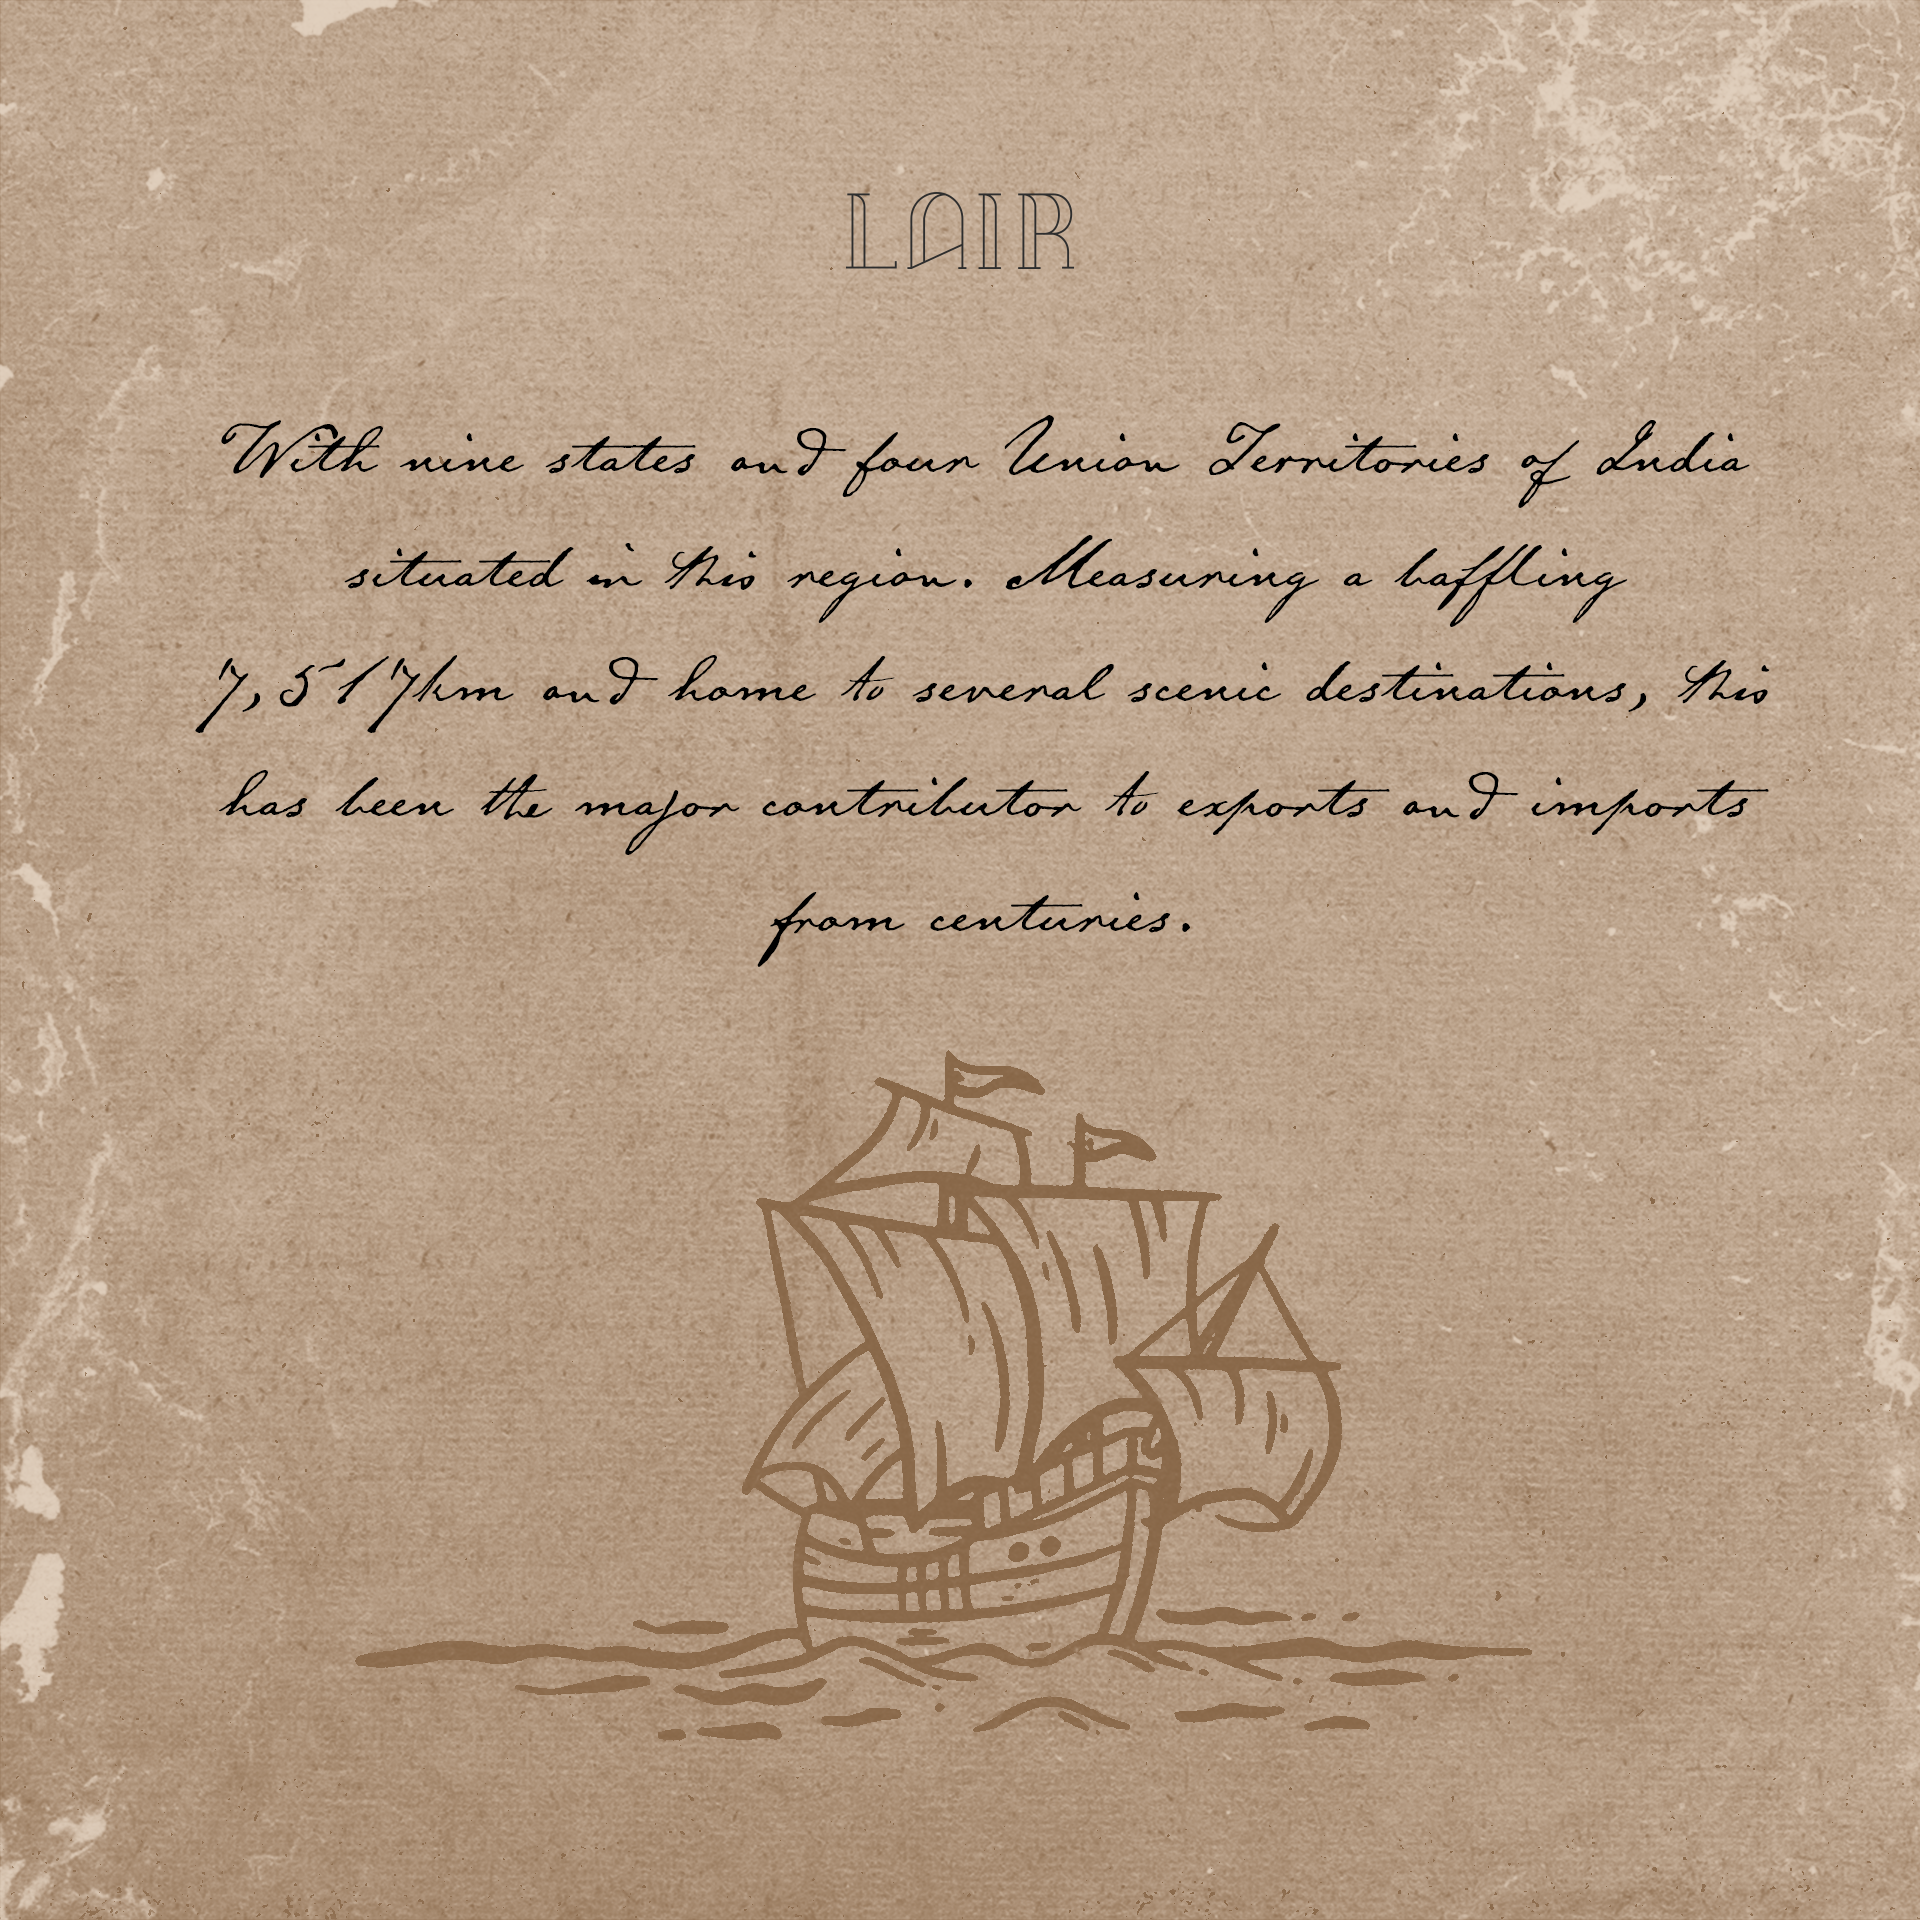 LAIR
With nine states and four Union Territories of India
situated in this region. Measuring a baffling
7,517km and home to several scenic destinations, this
has been the major contributor to exports and imports
from centuries.